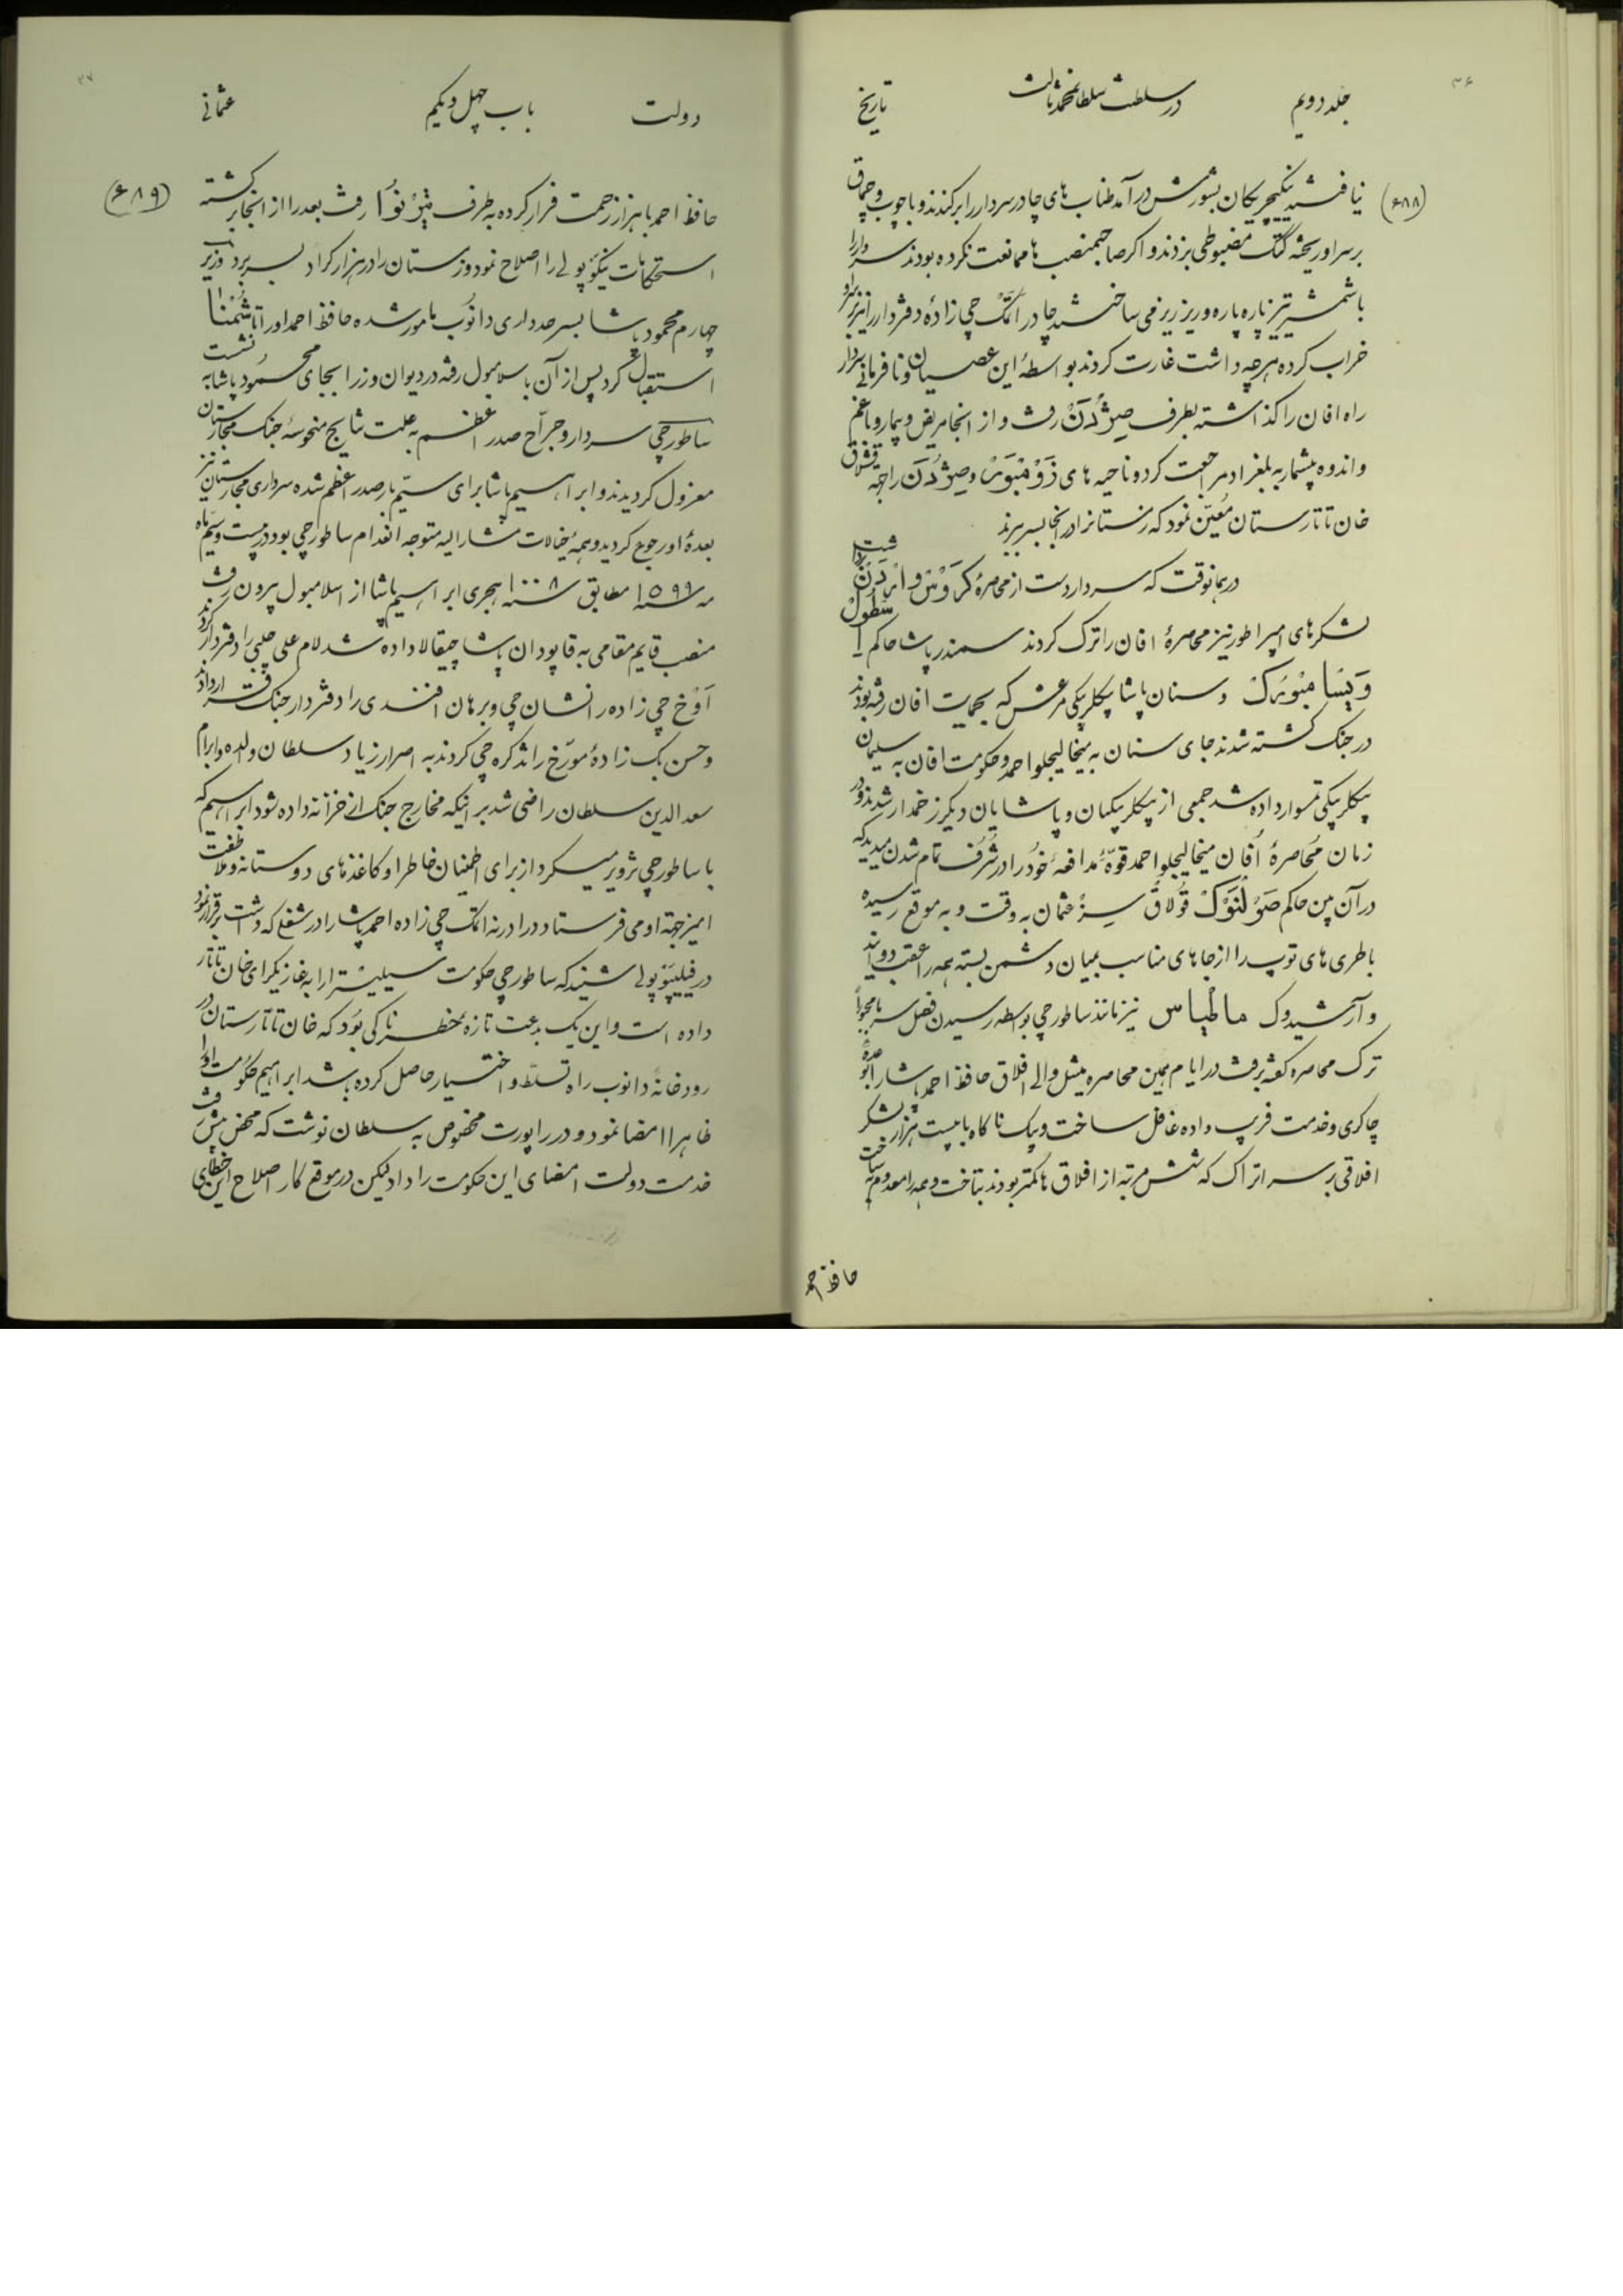 جلد دویم
در سلطنت سلطان محمد ثالث
تاریخ
(۶۸۸)
نیافتند ینکیچریکان بشورش در آمد طنابهای چادر سردار را بر کندند و با چوب و چماق
بر سر او ریخته کتک مضبوطی بزدند و اکر صاحبمنصب ها ممانعت نکرده بودند سردار را
با شمشیر تیز پاره پاره و ریز ریز می ساختند چادر اتمک چی زادهٔ دفتردار را نیز بر سر او
خراب کرده هر چه داشت غارت کردند بواسطهٔ این عصیان و نافرمانی سردار
راه افان را کذاشته بطرف صیژدن رفت و از انجا مریض و بیمار و با غم
و اندوه بیشمار به بلغراد مراجعت کرد و ناحیه های و صیژدن را جهة قشلاق
خان تاتارستان معین نمود که زمستانرا در انجا بسر برند
در همانوقت که سردار دست از محاصرهٔ کروس و ارادن
لشکرهای امپراطور نیز محاصرهٔ افان را ترک کردند سمندر پاشا حاکم
و سنان پاشا بیکلربیکی مرعش که بحمایت افان رفته بودند
در جنک کشته شدند جای سنان به میخالیجلو احمد و حکومت افان به سلیمان
بیکلربیکی تمسوار داده شد جمعی از بیکلربیکیان و پاشایان دیکر زخمدار شدند و در
زمان محاصرهٔ افان میخالیجلو احمد قوهٔ مدافعهٔ خود را در شرف تمام شدن میدید که
در آن بین حاکم صولنوک قولاق سز عثمان به وقت و به موقع رسیده
باطری های توپ را از جاهای مناسب بمیان دشمن بسته همه را عقب دوانید
و آرشیدوک ماطیاس نیز مانند ساطورچی بواسطه رسیدن فصل سرما مجبوراً
ترک محاصره کفته برفت در ایام همین محاصره میشل والی افلاق حافظ احمد پاشا را بوعده
چاکری و خدمت فریب داده غافل ساخت و یک ناکاه با بیست هزار لشکر
افلاقی بر سر اتراک که شش مرتبه از افلاق ها کمتر بودند بتاخت و همه را معدوم ساخت
حافظ احمد
دولت
باب چهل و یکم
عثمانی
(۶۸۹)
حافظ احمد با هزار زحمت فرار کرده به طرف رفت بعد را از انجا بر کشته
استحکامات نیکوپولی را اصلاح نمود و زمستان را در هزار کراد بسر برد وزیر
چهارم محمود پاشا بسرحدداری دانوب مامور شده حافظ احمد او را تا شمنا
استقبال کرد پس از آن باسلامبول رفته در دیوان وزرا بجای محمود پاشا به نشست
ساطورچی سردار و جراح صدر اعظم به علت نتایج منحوسهٔ جنک مجارستان
معزول کردیدند و ابراهیم پاشا برای سیم بار صدر اعظم شده سرداری مجارستان نیز
بعهدهٔ او رجوع کردید و همهٔ خیالات مشارالیه متوجه انعدام ساطورچی بود در بیست و سیم ماه
مه سنهٔ ۱۵۹۹ مطابق سنهٔ ۱۰۰۸ هجری ابراهیم پاشا از اسلامبول بیرون رفت
منصب قایم مقامی به قاپودان پاشا چیقالا داده شد لام علی چلبی را دفتردار کردند
اوخ چی زاده را نشان چی و برهان افندی را دفتردار جنک قرار دادند
و حسن بک زادهٔ مورخ را تذکره چی کردند به اصرار زیاد سلطان والده و ابرام
سعدالدین سلطان راضی شد بر اینکه مخارج جنک از خزانه داده شود ابراهیم که
با ساطورچی تزویر میکرد از برای اطمینان خاطر او کاغذهای دوستانه و ملاطفت
امیز جهة او می فرستاد در ادرنه اتمک چی زاده احمد پاشا را در شغلی که داشت برقرار نمود
در فیلیپوپولی شنید که ساطورچی حکومت سیلیسترا را به غازیکرای خان تاتار
داده است و این یک بدعت تازه مخطرناکی بود که خان تاتارستان در
رودخانهٔ دانوب راه تسلط و اختیار حاصل کرده باشد ابراهیم حکومت او را
ظاهرا امضا نمود و در راپورت مخصوص به سلطان نوشت که محض پیشرفت
خدمت دولت امضای این حکومت را داد لیکن در موقع کار اصلاح این خطای